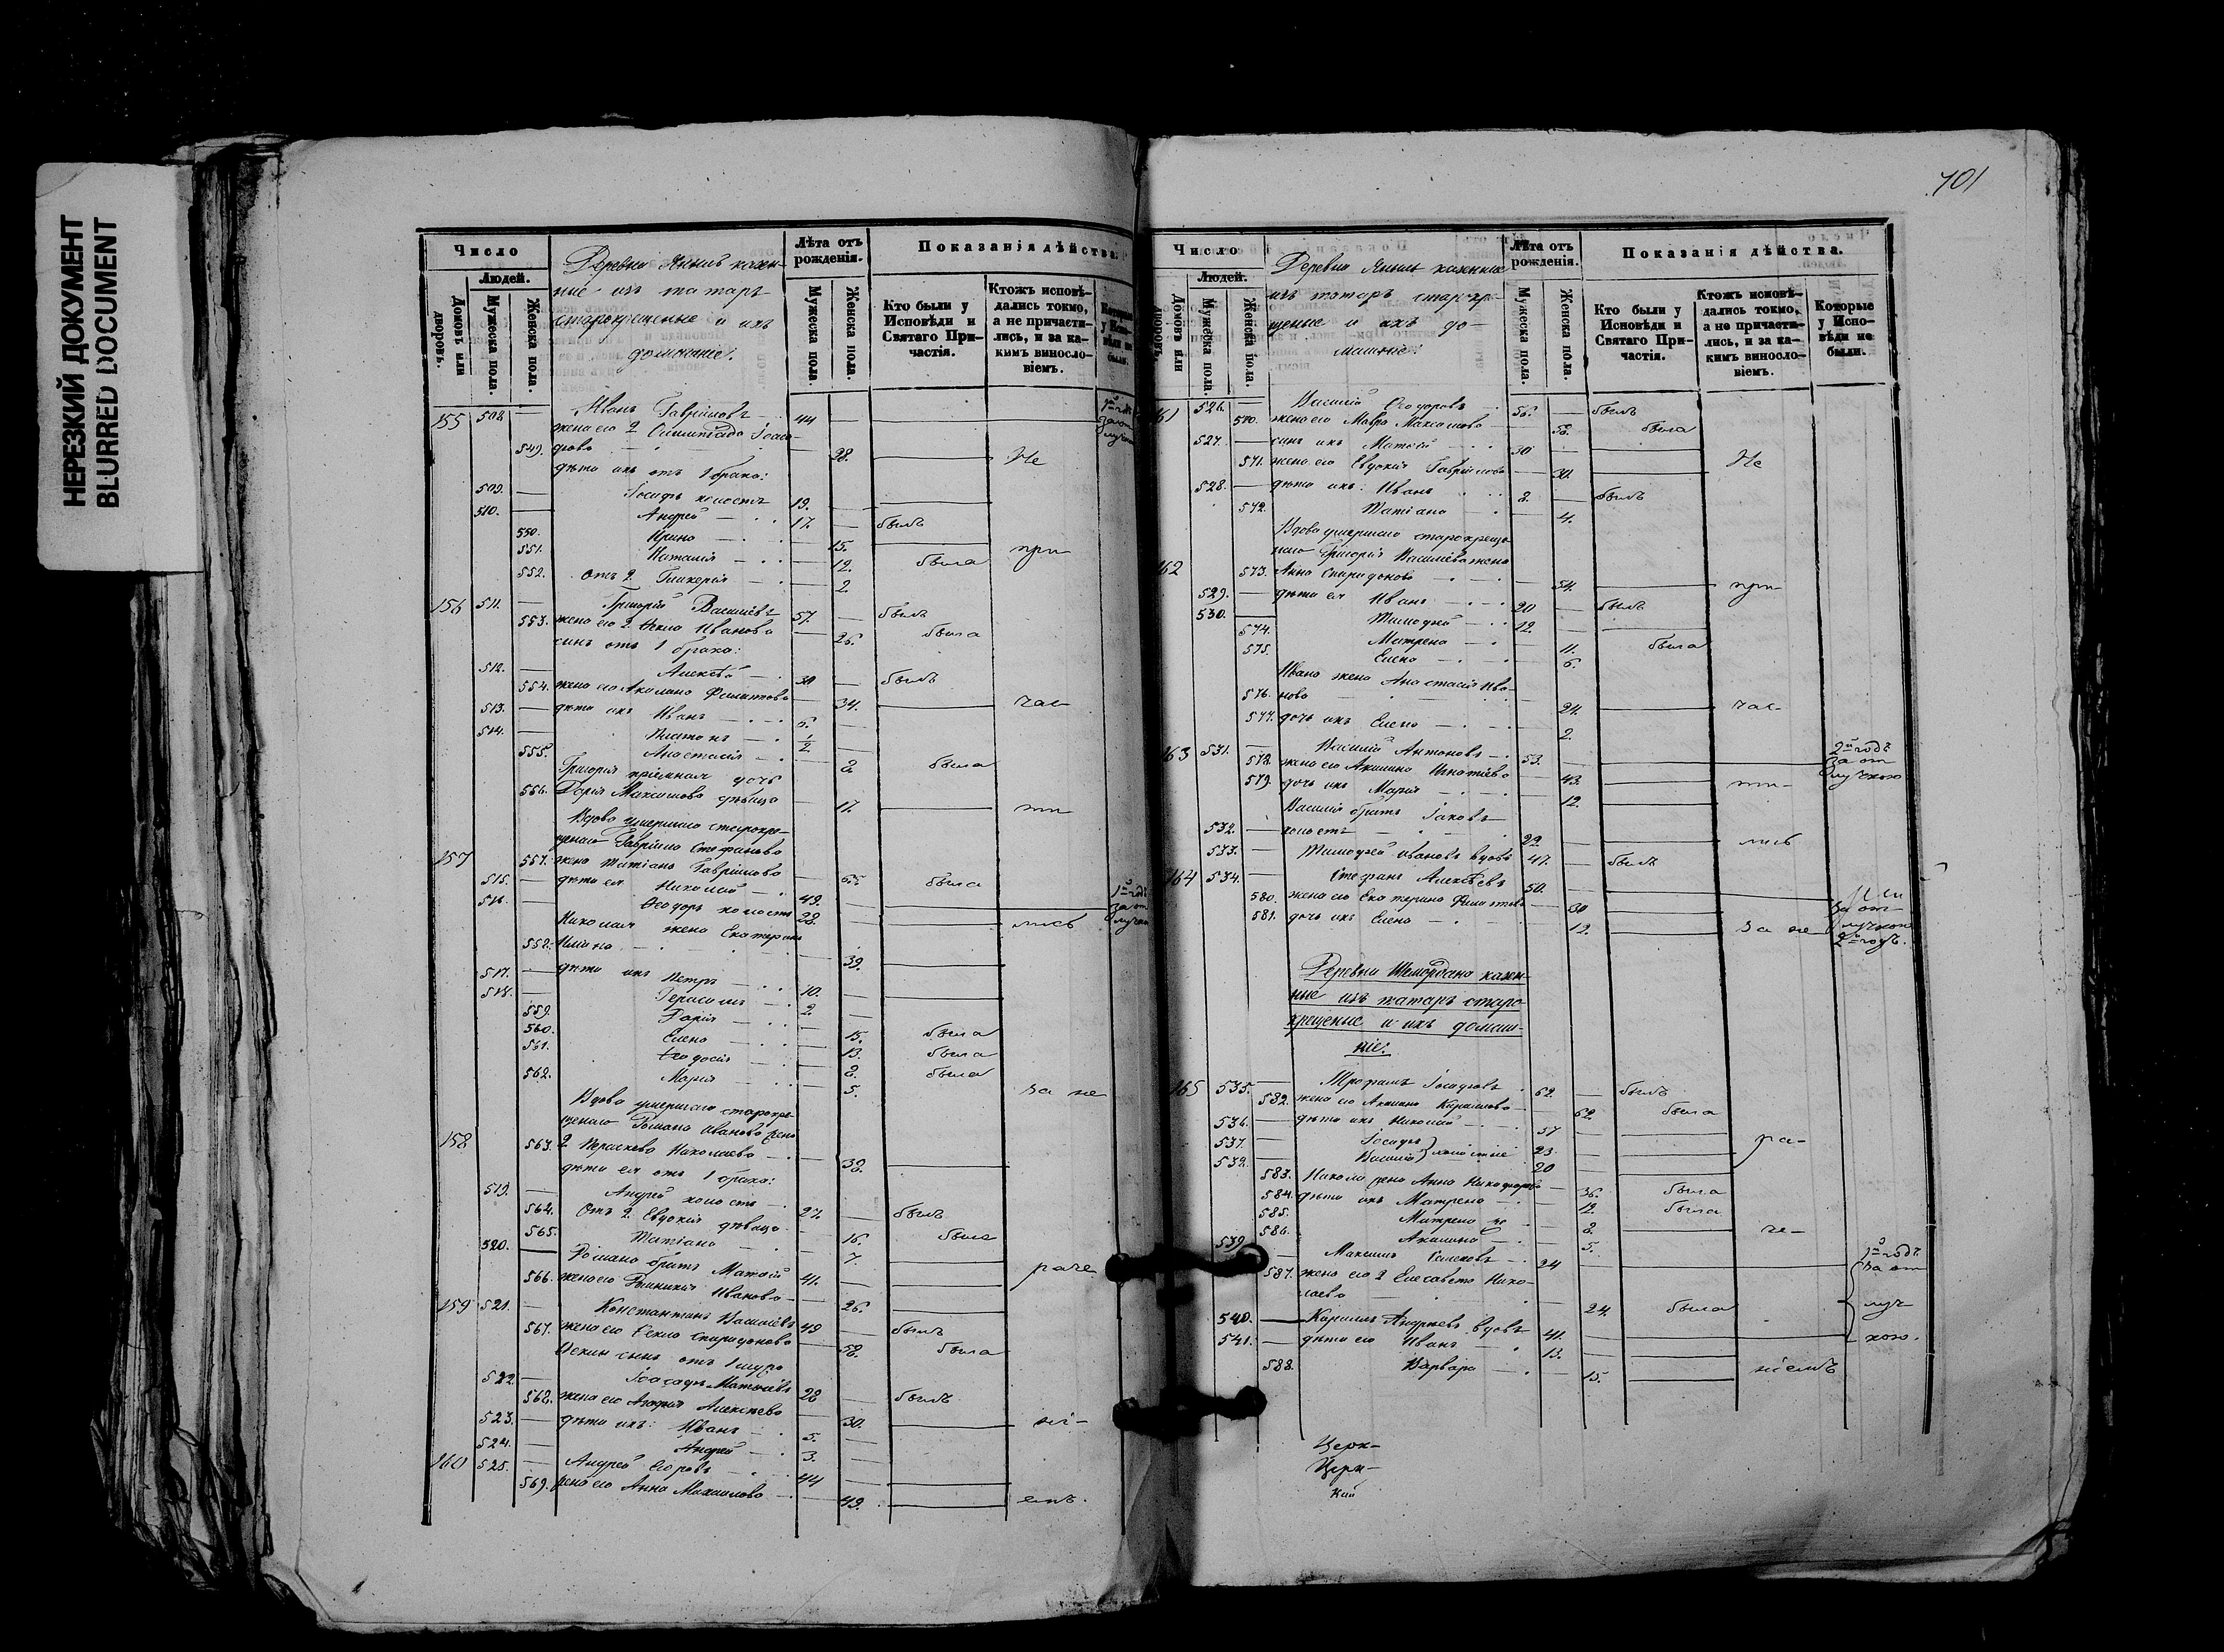 НЕРЕЗКИЙ ДОКУМЕНТ
BLURRED DOCUMENT
Число
Людей.
Домовъ или дворовъ.
Мужеска пола.
Женска пола.
Деревни Яныль казен-
ные изъ татаръ
старокрещеные и ихъ
домашніе.
Лѣта отъ рожденія.
Мужеска пола
Женска пола.
Показанія дѣйства.
Кто были у Исповѣди и Святаго При-
частія.
Ктожъ исповѣ-
дались токмо, а не причасти-
лись, и за ка-
кимъ виносло-
віемъ.
Которые у Испо-
вѣди не были.
155 508. — Иванъ Гавріиловъ 44
жена его 2
549. 28. Не
дѣти ихъ отъ 1 брака:
509. — Іосифъ холостъ 19.
510. — Андрей 17. былъ
550. Ирина 15.
551. Наталія 12. была при
552. отъ 2 Гликерія 2
156 511. — Григорій Васильевъ 57. былъ
553. жена его 2 Ѳекла Иванова 26. была
сынъ отъ 1 брака:
512. — Алексѣй 30 былъ
554. жена его Акилина Филиппова 34. час-
513. — дѣти ихъ Иванъ 6.
514. — Платонъ 1/2
555. Анастасія 8. была
Григорія пріемная дочь
556. Дарія Максимова дѣвица 17. ти
Вдова умершаго старокре-
щенаго Гавріила Стефанова
157 557. жена Татіана Гавріилова 65. была
515. — дѣти ея Николай 49.
516. — Ѳеодоръ холостъ 28. лись
Николая жена Екатерина
558. 39.
517. — дѣти ихъ Петръ 10.
518. — Герасимъ 2
559. Дарія 15. была
560. Елена 13. была
561. Ѳеодосія 8. была
562. Марія 5. за не
Вдова умершаго старокре-
щенаго Романа Иванова жена
158 563. 2 Параскева Николаева 38.
дѣти ея отъ 1 брака:
519. — Андрей холостъ 27. былъ
564. Отъ 2. Евдокія дѣвица 16. была
565. Татіана 7.
520. — Романа братъ Матѳей 41. раче
566. жена его Иванова 26.
159 521. — Константинъ Васильевъ 49 былъ
567. жена его Ѳекла Спиридонова 58. была
Ѳеклин сынъ отъ 1 мужа
522. — Іоасафъ Матвѣевъ 28 былъ
568. жена его Агафія Алексѣева 30. ні-
523. — дѣти ихъ: Иванъ 5.
524. — Андрей 3.
160 525. — Андрей Егоровъ 44
569. жена его Анна Михайлова 49. емъ.
701
Число
Людей.
Домовъ или дворовъ.
Мужеска пола.
Женска пола.
Деревни Яныль казенные
изъ татаръ старокре-
щеные и ихъ до-
машніе.
Лѣта отъ рожденія.
Мужеска пола.
Женска пола.
Показанія дѣйства.
Кто были у Исповѣди и Святаго При-
частія.
Ктожъ исповѣ-
дались токмо, а не причасти-
лись, и за ка-
кимъ виносло-
віемъ.
Которые у Испо-
вѣди не были.
161 526. — Василій Ѳеодоровъ 56. былъ
570. жена его Мавра Максимова 58. была
527. — сынъ ихъ Матѳей 30
571. жена его Евдокія Гавріилова 30. Не
528. — дѣти ихъ: Иванъ 8. былъ
572. Татіана 4.
Вдова умершаго старокреще-
наго Григорія Васильева жена
162 573. Анна Спиридонова 54. при
529. — дѣти ея Иванъ 20 былъ
530. — Тимоѳей 12.
574. Матрена 11. была
575. Елена 6.
Ивана жена Анастасія Ива-
576. нова 24. час-
577. дочь ихъ Елена 2.
163 531. — Василій Антоновъ 53. 2й годъ
578. жена его Акилина Игнатіева 43. за от
579. дочь ихъ Марія 12. ти- лучкою
Василія братъ Іаковъ
532. — холостъ 22. лись
533. — Тимоѳей Ивановъ вдовъ 47. былъ
164 534. — Стефанъ Алексѣевъ 50.
580. жена его Екатерина Филиппова 30 за от-
581. дочь ихъ Елена 12. за не лучкою
2й годъ.
Деревни Шемордана казен-
ные изъ татаръ старо-
крещеные и ихъ домаш-
ніе.
165 535. — Трофимъ Іосифовъ 62. былъ
582. жена его Акилина Кириллова 62. была
536. — дѣти ихъ Николай 37
537. — Іосифъ 23. ра-
538. — Василій } холостые 20
583. Никола жена Анна Никифорова 36. была
584. дѣти ихъ Матрена 12. была
585. Матрена же 8. че-
586. Акилина 5.
539. — Максимъ 24 1й годъ
587. жена его 2 Елисавета Нико- за от
лаева 24. была луч
540. — Кириллъ Андреевъ вдовъ 41. кою.
541. — дѣти его Иванъ 13.
588. Варвара 15. ніемъ
Церк-
Церк-
кий